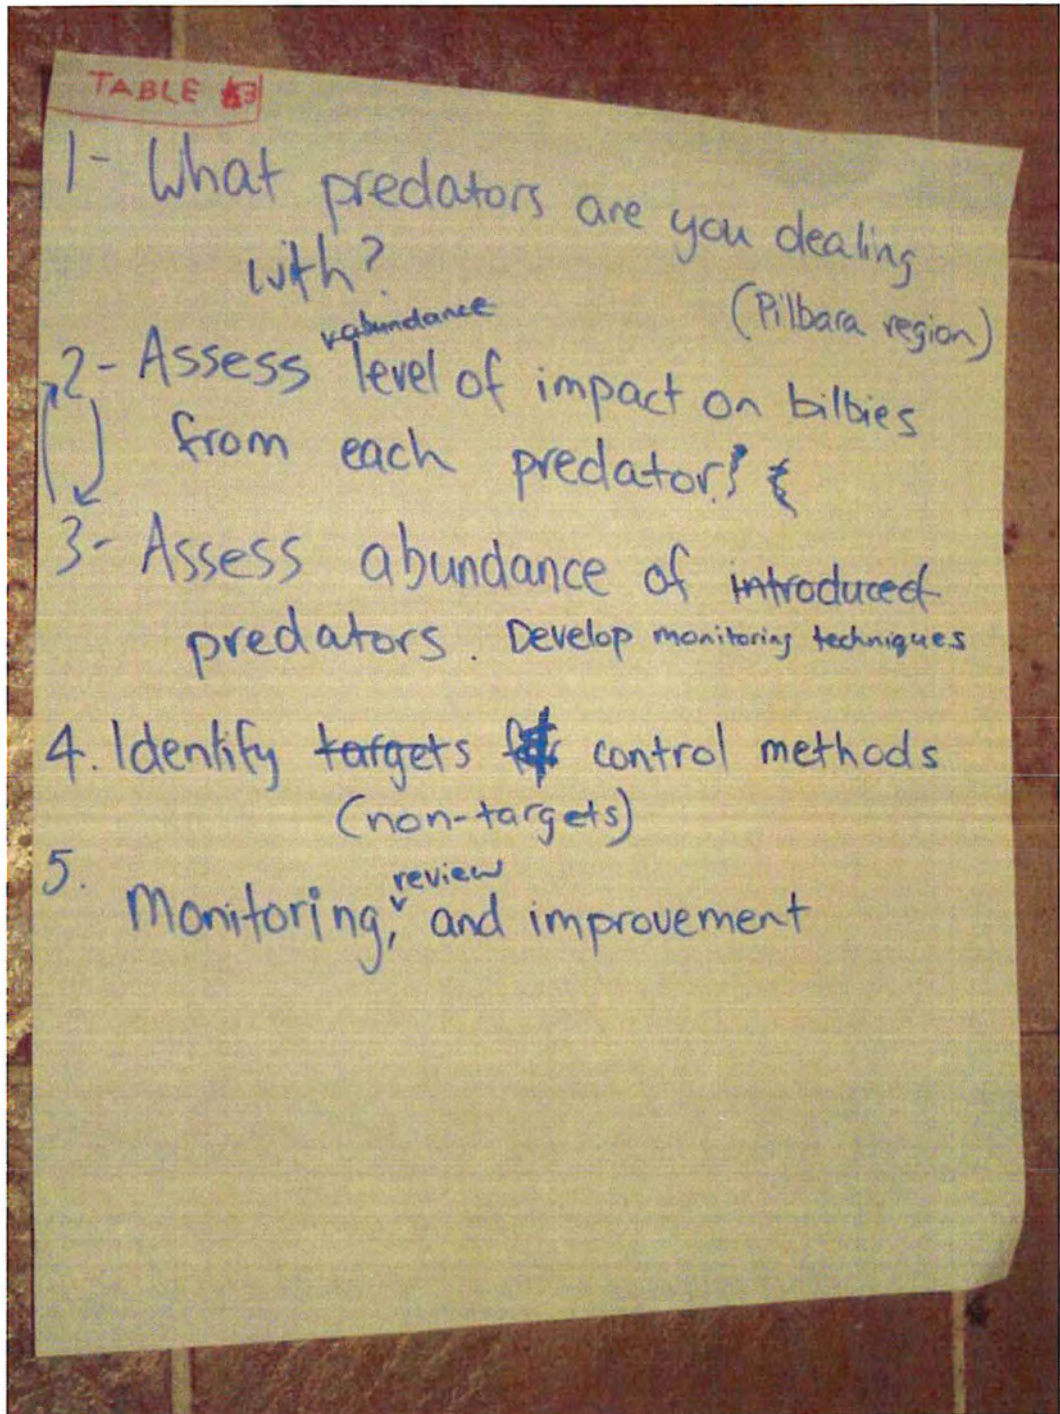 TABLE 3
1- What predators are you dealing
with?
(Pilbara region)
abundance
2- Assess level of impact on bilbies
from each predator?
3- Assess abundance of introduced
predators. Develop monitoring techniques
4. Identify targets for control methods
(non-targets)
5.
review
Monitoring, and improvement